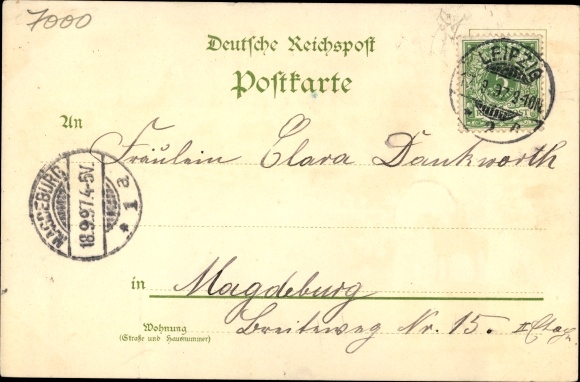 7000
Deutsche Reichspost
Postkarte
LEIPZIG
An
Fräulein Clara Dankworth
MAGDEBURG
18.9.97. 4-5V.
* 1 a
in Magdeburg
Wohnung
(Straße und Hausnummer)
Breiteweg Nr. 15. II Etage